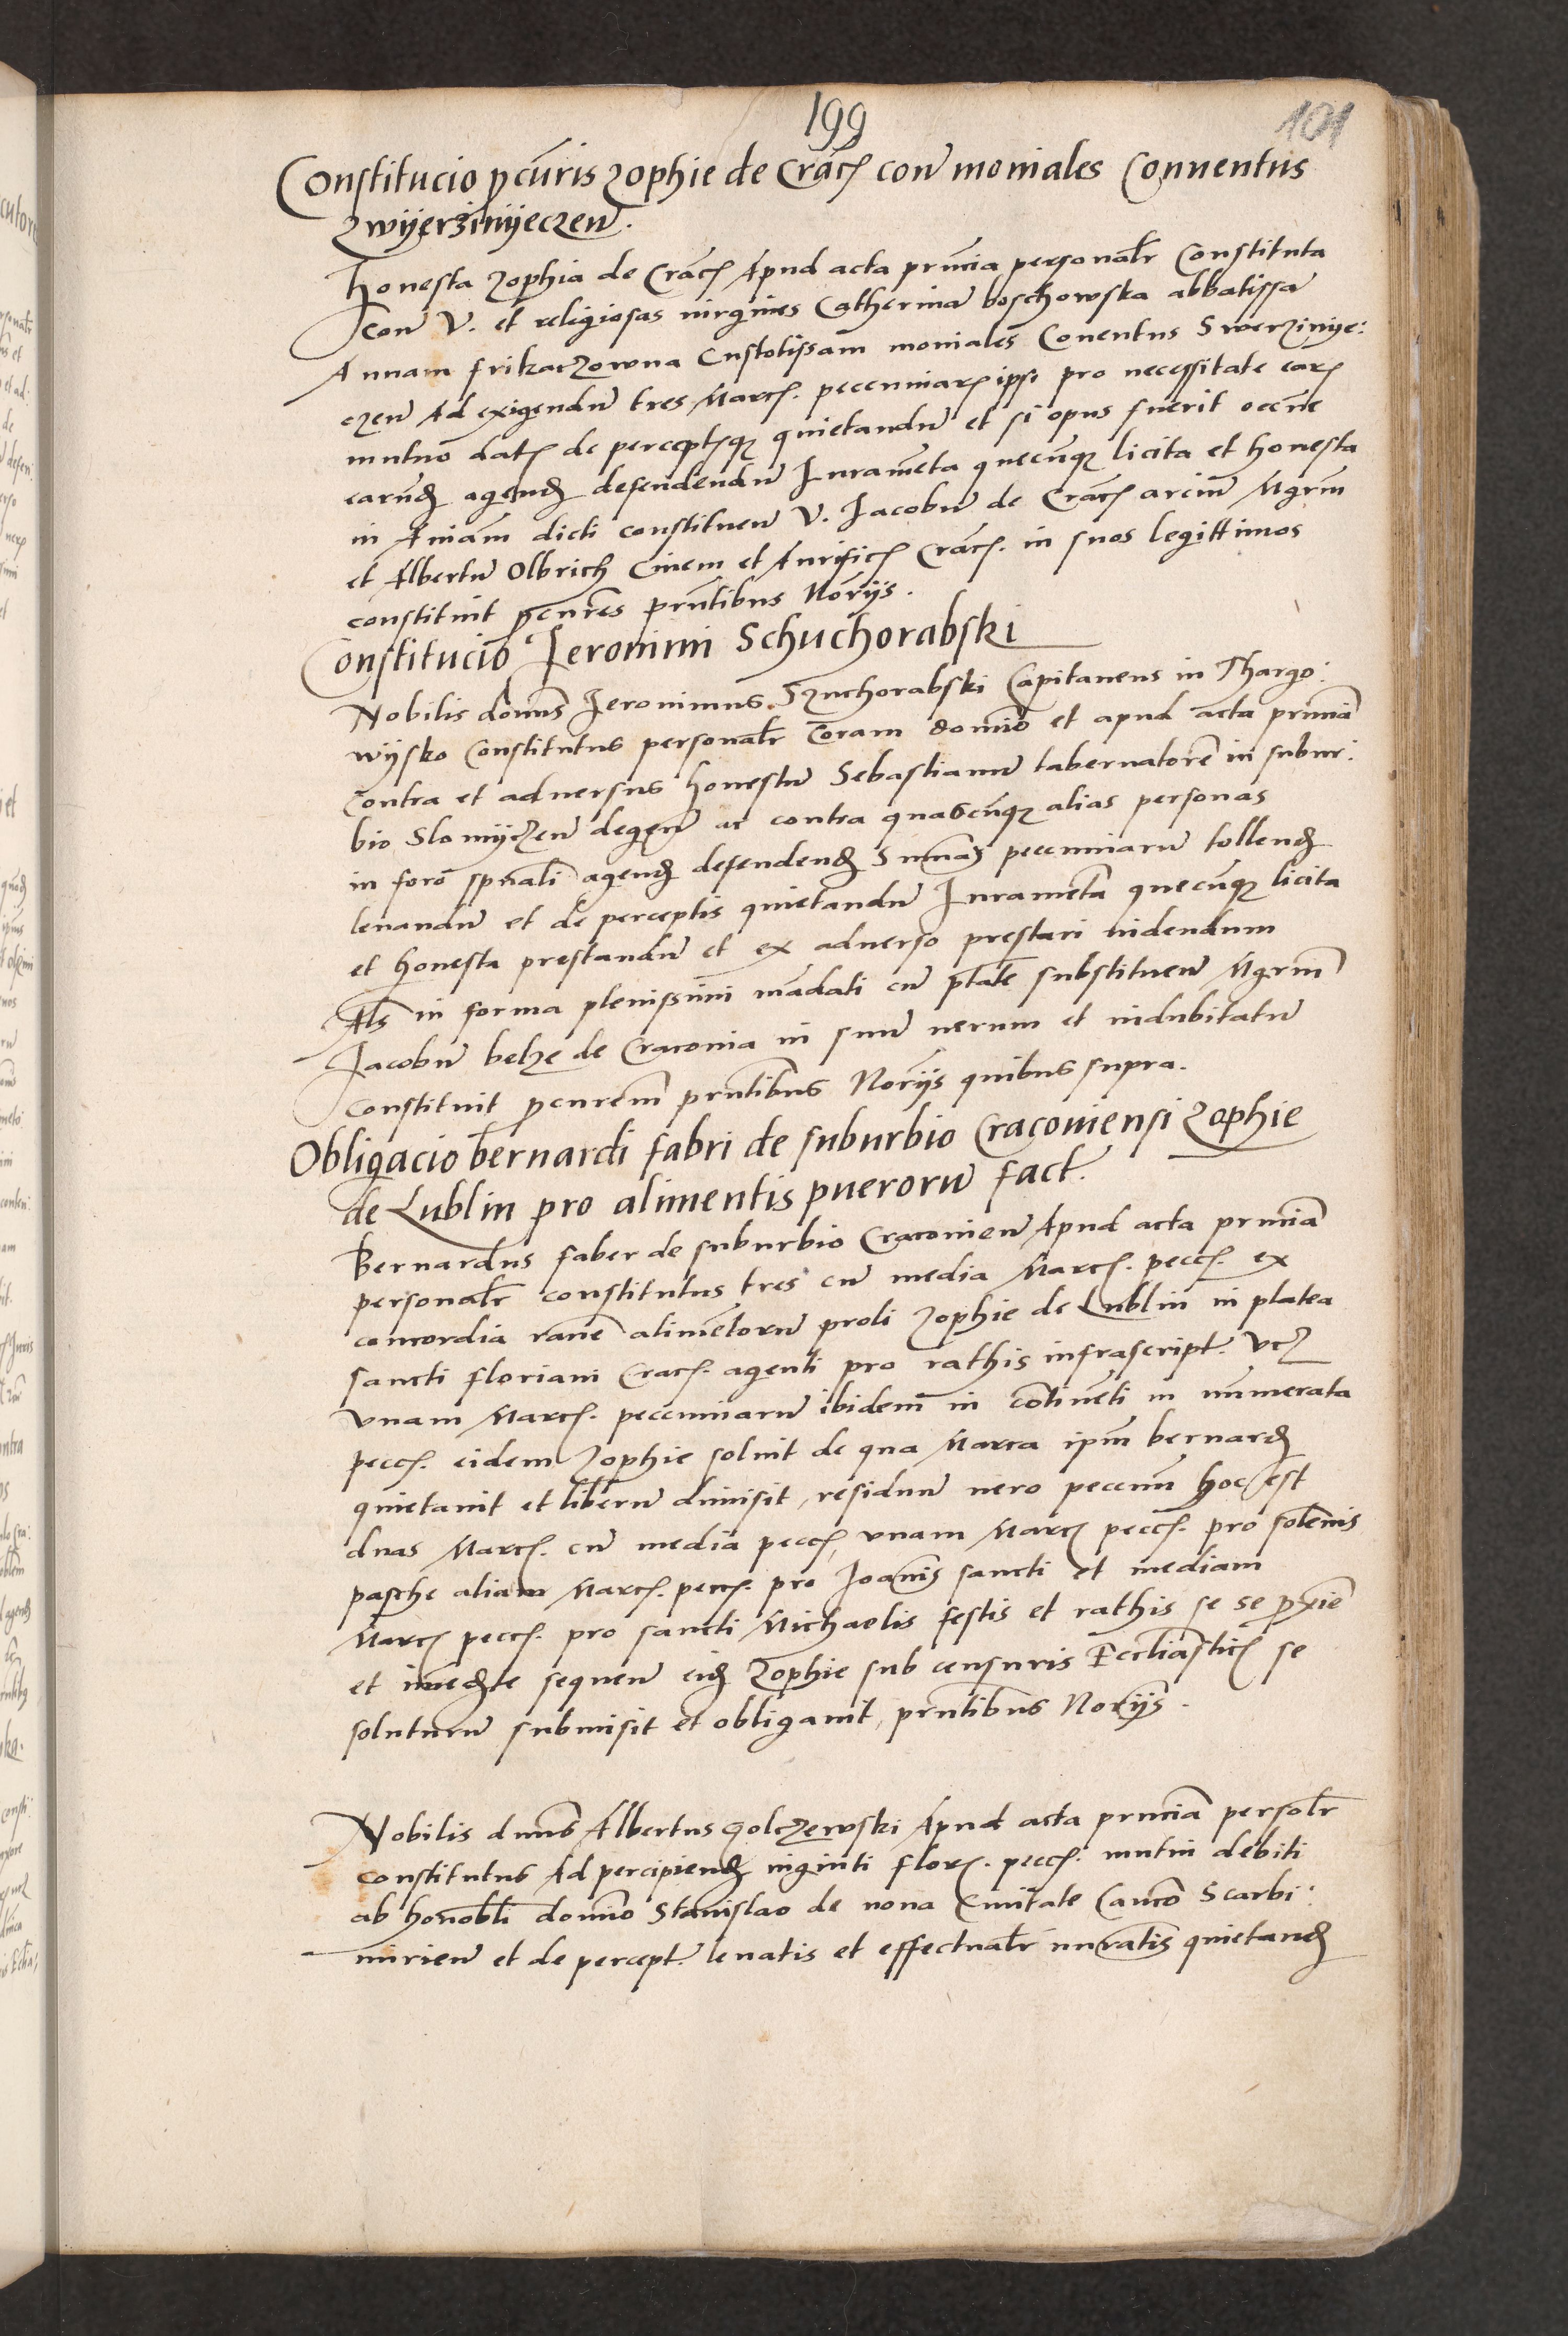 199
101
Constitucio pcuris Zophie de Crac con moniales Conuentus
Zwyerzinyeczen.
Honesta Zophia de Crac Apud acta prncia personalr Constituta
con V. et religiosas uirgines Catherina boschowska abbatissa
Annam frikaczowna Custotissam moniales Conentus Swerzinye:
czen Ad exigendu tres Marc. pecuniar ipsi pro necessitate ear
mutuo dat de perceptisq quietandu et si opus fuerit occne
earund agend defendendu Iurameta quecunq licita et honesta
in Aniam dicti constituen V. Iacobu de Crac arciu Mgrm
et Albertu Olbrich Ciuem et Aurific Crac. in suos legittimos
constituit pcures prntibus Noriis.
Constitucio Ieronimi Schuchorabski
Nobilis domns Ieronimus Szuchorabski Capitaneus in Thargo:
wysko Constitutus personalr Coram domino et apud acta prncia
contra et aduersus honestu Sebastianu tabernatore in subur:
bio Slomyczen degen ac contra quascunq alias personas
in foro spnali agend defendend Summas pecuniaru tollend
leuandu et de perceptis quietandu Iurameta quecunq licita
et honesta prestandu et ex aduerso prestari uidendum
Als in forma plenissimi madati cu ptate substituen Mgrm
Iacobu belze de Cracouia in suu uerum et indubitatu
constituit pcurem prntibus Noriis quibus supra.
Obligacio bernardi fabri de suburbio Cracouiensi Zophie
de Lublin pro alimentis pueroru fact.
Bernardus faber de suburbio Cracouien Apud acta prncia
personalr constitutus tres cu media Marc. pecc. ex
concordia rane alimetoru proli Zophie de Lublin in platea
sancti floriani Crac. agenti pro rathis infrascript. vcz
vnam Marc. pecuniaru ibidem in cotineti in numerata
pecc. eidem Zophie soluit de qua Marca ipm bernard
quietauit et liberu dimisit, residuu uero pecunu hoc est
duas Marc. cu media pecc, vnam Marc pecc. pro solenis
pasche aliam Marc. pecc. pro Ioanis sancti et mediam
Marc pecc. pro sancti Michaelis festis et rathis se se pxie
et imedte sequen eid Zophie sub censuris Eccliastic se
soluturu submisit et obligauit, prntibus Noriis.
Nobilis dnus Albertus Golczewski Apud acta prncia persolr
constitutus Ad percipiend uiginti flor. pecc. mutui debiti
ab honobli domino Stanislao de noua Ciuitate Canco Scarbi:
mirien et de percept. leuatis et effectualr nuratis quietand